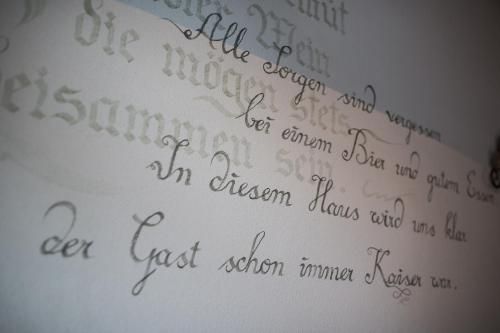 Mein
die mögen stets
beisammen sein.
Alle Sorgen sind vergessen
bei einem Bier und gutem Essen
In diesem Haus wird uns klar
der Gast schon immer Kaiser war.